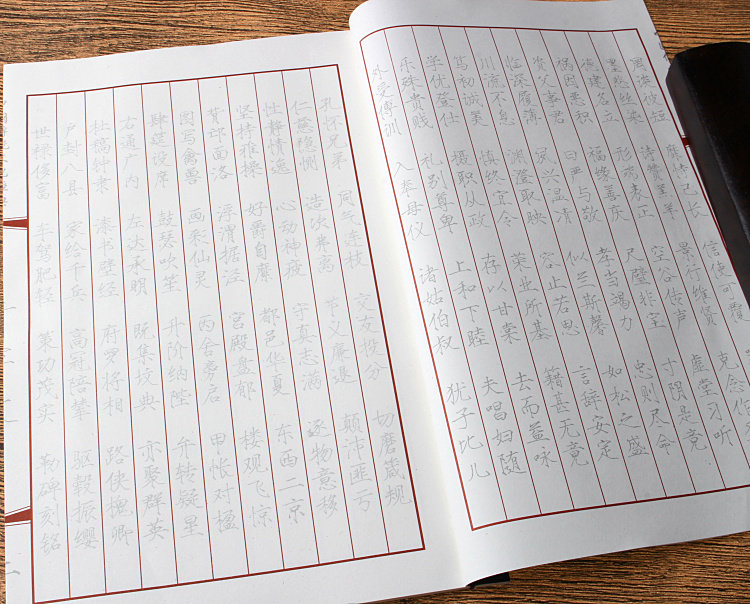 罔谈彼短 靡恃己长 信使可覆
墨悲丝染 诗赞羔羊 景行维贤 克念作
德建名立 形端表正 空谷传声 虚堂习听
祸因恶积 福缘善庆 尺璧非宝 寸阴是竞
资父事君 曰严与敬 孝当竭力 忠则尽命
临深履薄 夙兴温清 似兰斯馨 如松之盛
川流不息 渊澄取映 容止若思 言辞安定
笃初诚美 慎终宜令 荣业所基 籍甚无竟
学优登仕 摄职从政 存以甘棠 去而益咏
乐殊贵贱 礼别尊卑 上和下睦 夫唱妇随
外受傅训 入奉母仪 诸姑伯叔 犹子比儿
孔怀兄弟 同气连枝 交友投分 切磨箴规
仁慈隐恻 造次弗离 节义廉退 颠沛匪亏
性静情逸 心动神疲 守真志满 逐物意移
坚持雅操 好爵自縻 都邑华夏 东西二京
背邙面洛 浮渭据泾 宫殿盘郁 楼观飞惊
图写禽兽 画彩仙灵 丙舍旁启 甲帐对楹
肆筵设席 鼓瑟吹笙 升阶纳陛 弁转疑星
右通广内 左达承明 既集坟典 亦聚群英
杜稿钟隶 漆书壁经 府罗将相 路侠槐卿
户封八县 家给千兵 高冠陪辇 驱毂振缨
世禄侈富 车驾肥轻 策功茂实 勒碑刻铭